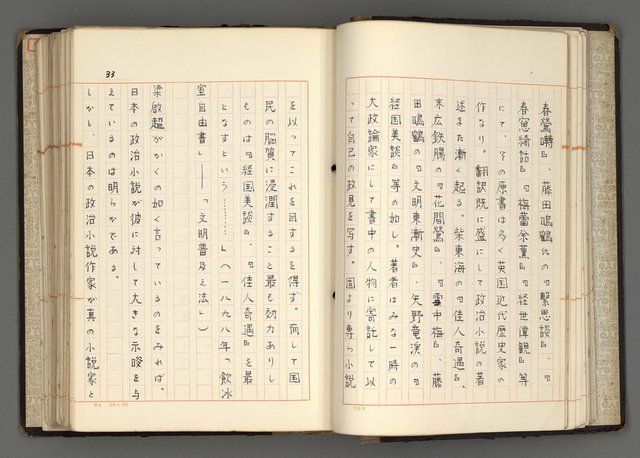 春鶯囀』、藤田鳴鶴氏の『繋思談』、『
春窓綺話』『梅蕾余薫』『経世偉観』等
にて、その原書は多く英国近代歴史家の
作なり。翻訳既に盛にして政治小説の著
述また漸く起る。柴東海の『佳人奇遇』、
末広鉄腸の『花間鶯』、『雪中梅』、藤
田鳴鶴の『文明東漸史』、矢野竜渓の『
経国美談』等の如し。著者はみな一時の
大政論家にして書中の人物に寄託して以
って自己の政見を写す。固より専ら小説
33
を以ってこれを目するを得ず。而して国
民の脳質に浸潤すること最も効力ありし
ものは『経国美談』、『佳人奇遇』を最
となすという………」(一八九八年「飲冰
室自由書」――「文明普及之法」)
梁啟超がかくの如く言っているのをみれば、
日本の政治小説が彼に対して大きな示唆を与
えているのは明らかである。
しかし、日本の政治小説作家が真の小説家と